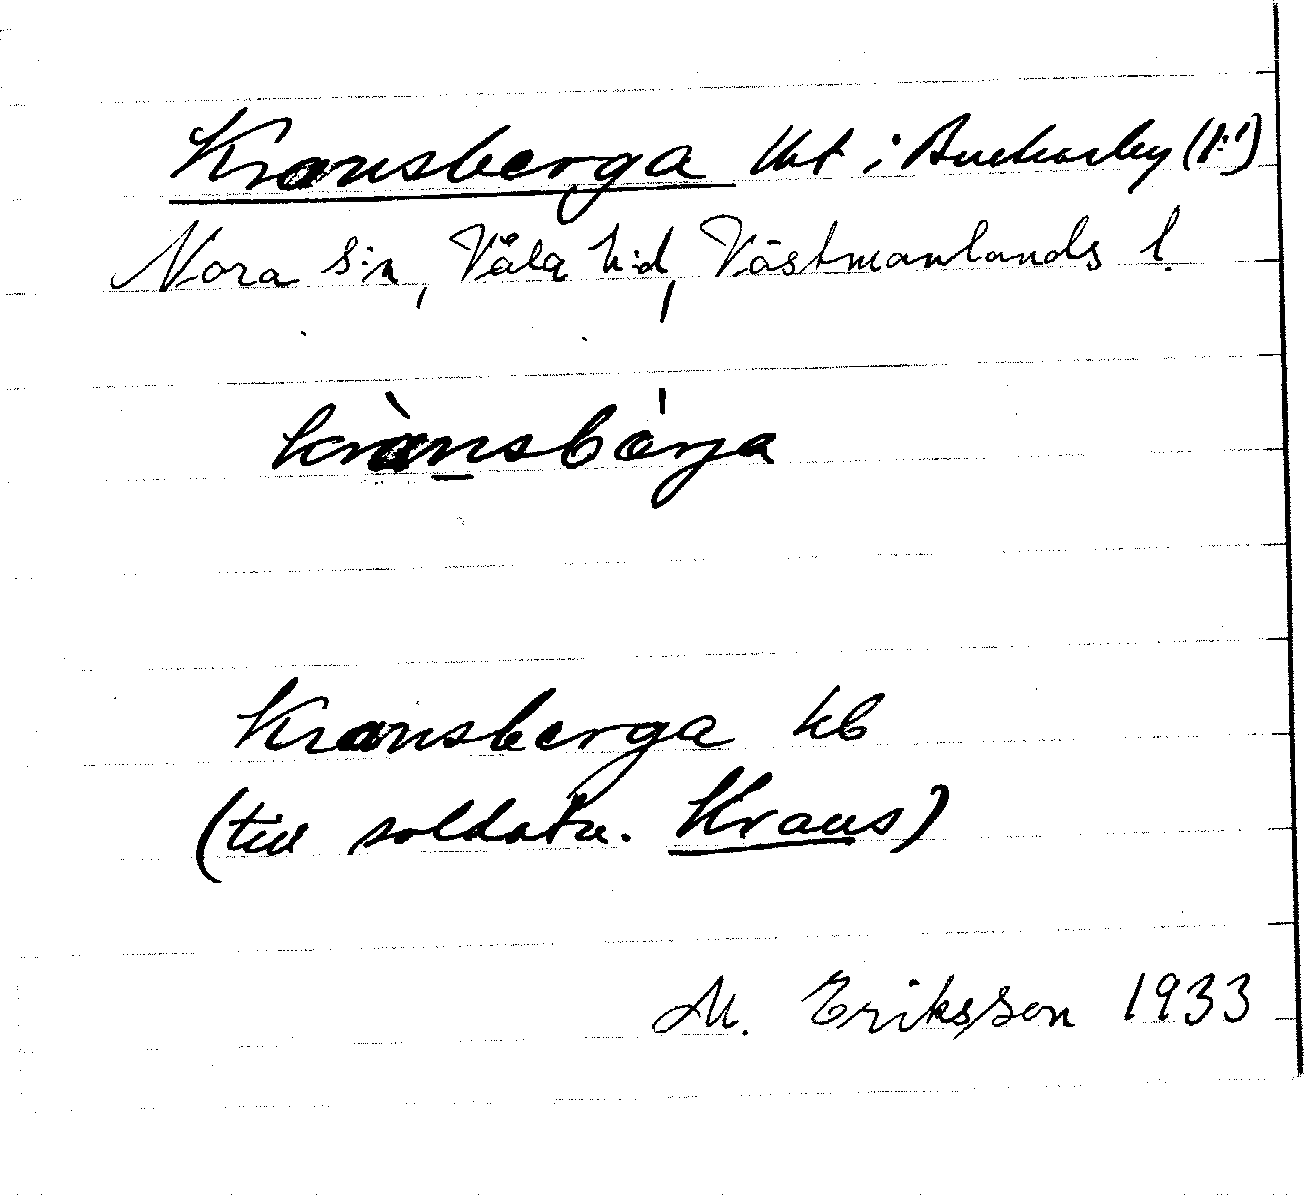 Kransberga lht i Buckarby (1:1)
Nora s:n, Våla h:d, Västmanlands l.
krànsbárja
Kransberga kb
(till soldatn. Krans)
M. Eriksson 1933